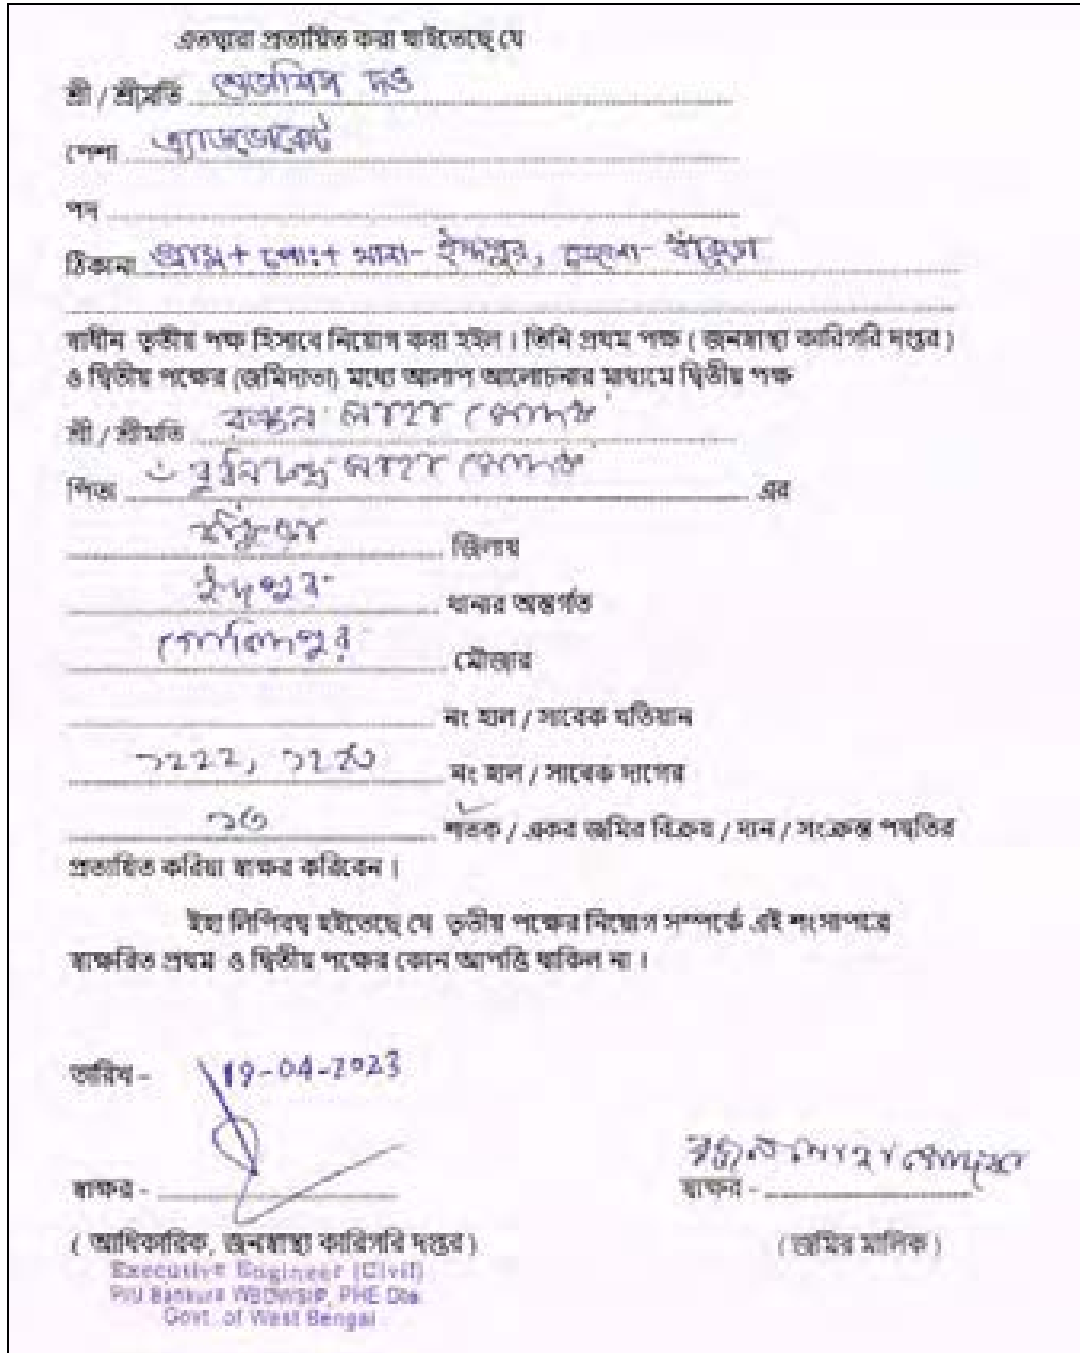 এতদ্বারা প্রত্যয়িত করা যাইতেছে যে
শ্রী / শ্রীমতি শুভাশিস দত্ত
পেশা এ্যাডভোকেট
পদ
ঠিকানা গ্রাম + পোঃ + থানা - ইন্দপুর, জেলা - বাঁকুড়া
স্বাধীন তৃতীয় পক্ষ হিসাবে নিয়োগ করা হইল । তিনি প্রথম পক্ষ ( জনস্বাস্থ্য কারিগরি দপ্তর )
ও দ্বিতীয় পক্ষের (জমিদাতা) মধ্যে আলাপ আলোচনার মাধ্যমে দ্বিতীয় পক্ষ
শ্রী / শ্রীমতি
পিতা এর
বাঁকুড়া জিলায়
ইন্দপুর থানার অন্তর্গত
গোবিন্দপুর মৌজার
নং হাল / সাবেক খতিয়ান
নং হাল / সাবেক দাগের
শতক / একর জমির বিক্রয় / দান / সংক্রান্ত পদ্ধতির
প্রত্যয়িত করিয়া স্বাক্ষর করিবেন ।
ইহা লিপিবদ্ধ হইতেছে যে তৃতীয় পক্ষের নিয়োগ সম্পর্কে এই শংসাপত্রে
স্বাক্ষরিত প্রথম ও দ্বিতীয় পক্ষের কোন আপত্তি থাকিল না ।
তারিখ - 19-04-2023
স্বাক্ষর -
স্বাক্ষর -
( আধিকারিক, জনস্বাস্থ্য কারিগরি দপ্তর )
( জমির মালিক )
Executive Engineer (Civil)
PIU Bankura WBDWSIP, PHE Dte.
Govt. of West Bengal